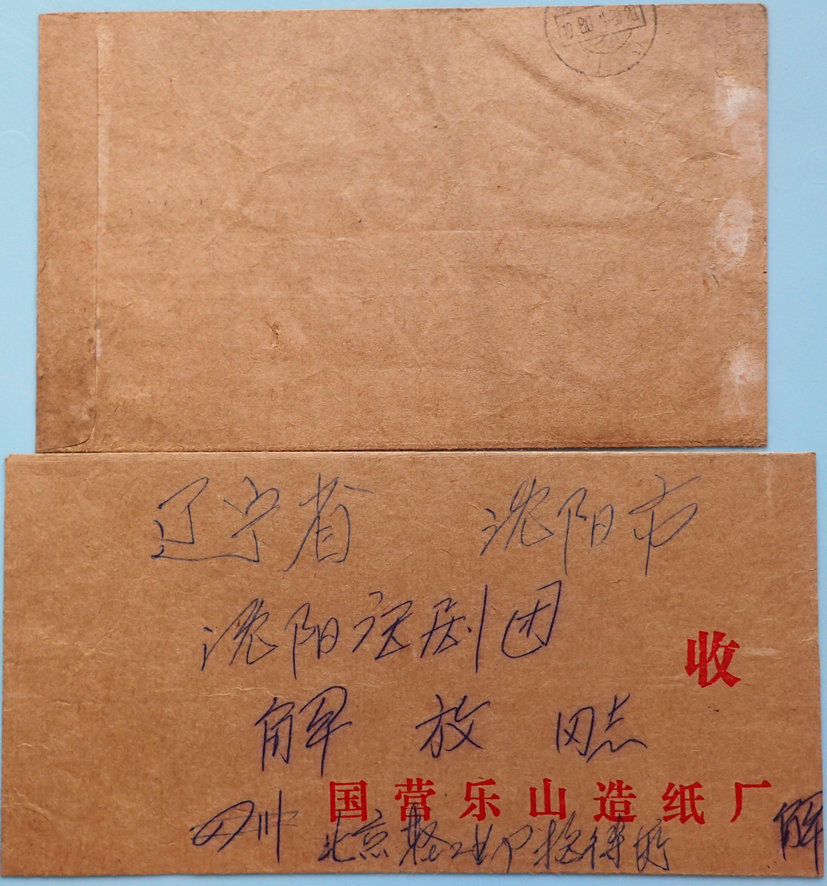 辽宁省 沈阳市
沈阳话剧团
收
解放 同志
国营乐山造纸厂
四川 北京轻工业部招待所 解